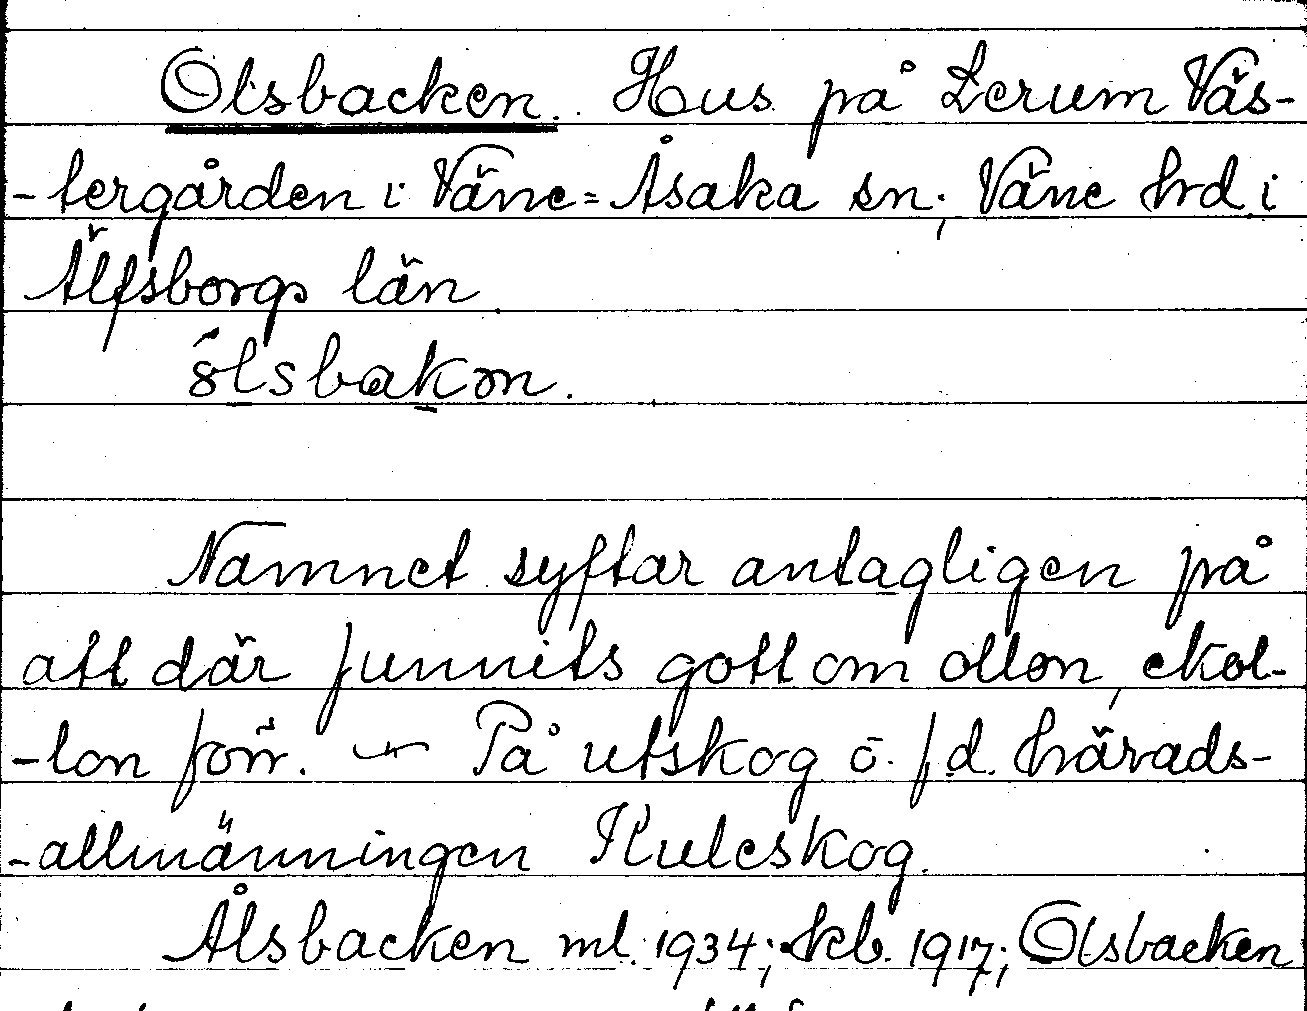 Olsbacken. Hus på Lerum Väs-
-tergården i Väne=Åsaka sn; Väne hrd i
Älfsborgs län
Namnet syftar antagligen på
att där funnits gott om ollon, ekol-
-lon förr. — På utskog ö. f.d. härads-
-allmänningen Kuleskog.
Ålsbacken ml. 1934; kb. 1917; Olsbacken